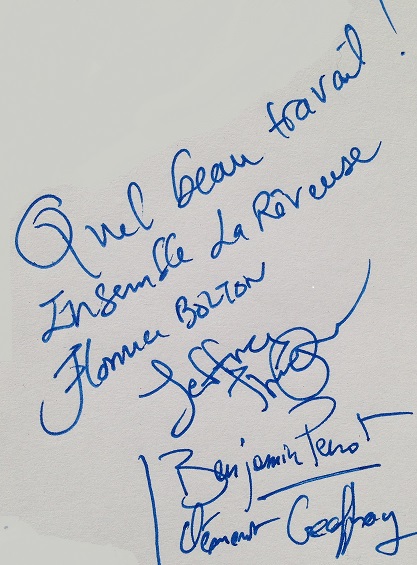 Quel beau travail !
Ensemble La Rêveuse
Florence BOLTON
Jeffrey
Benjamin Perrot
Clément Geoffroy